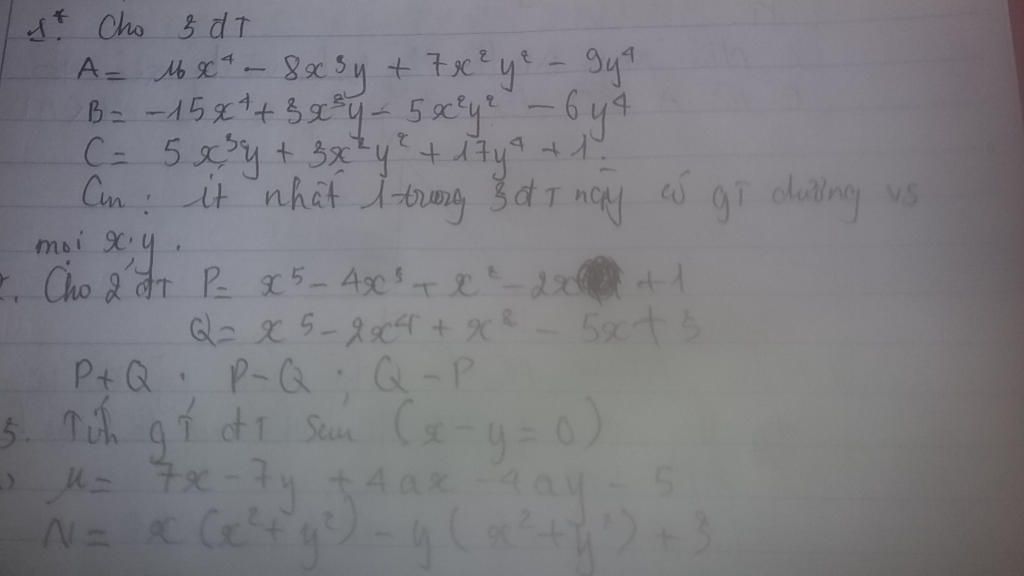 1*. Cho 3 đT
A = 16x⁴ - 8x³y + 7x²y² - 9y⁴
B = -15x⁴ + 3x³y - 5x²y² - 6y⁴
C = 5x³y + 3x²y² + 17y⁴ + 1.
Cm: ít nhất 1 trong 3 đT này có gT dương vs
mọi x, y.
2. Cho 2 đT P = x⁵ - 4x³ + x² - 2x + 1
Q = x⁵ - 2x⁴ + x² - 5x + 3
P+Q ; P-Q ; Q-P
3. Tính gT đT sau (x - y = 0)
M = 7x - 7y + 4ax - 4ay - 5
N = x(x² + y²) - y(x² + y²) + 3